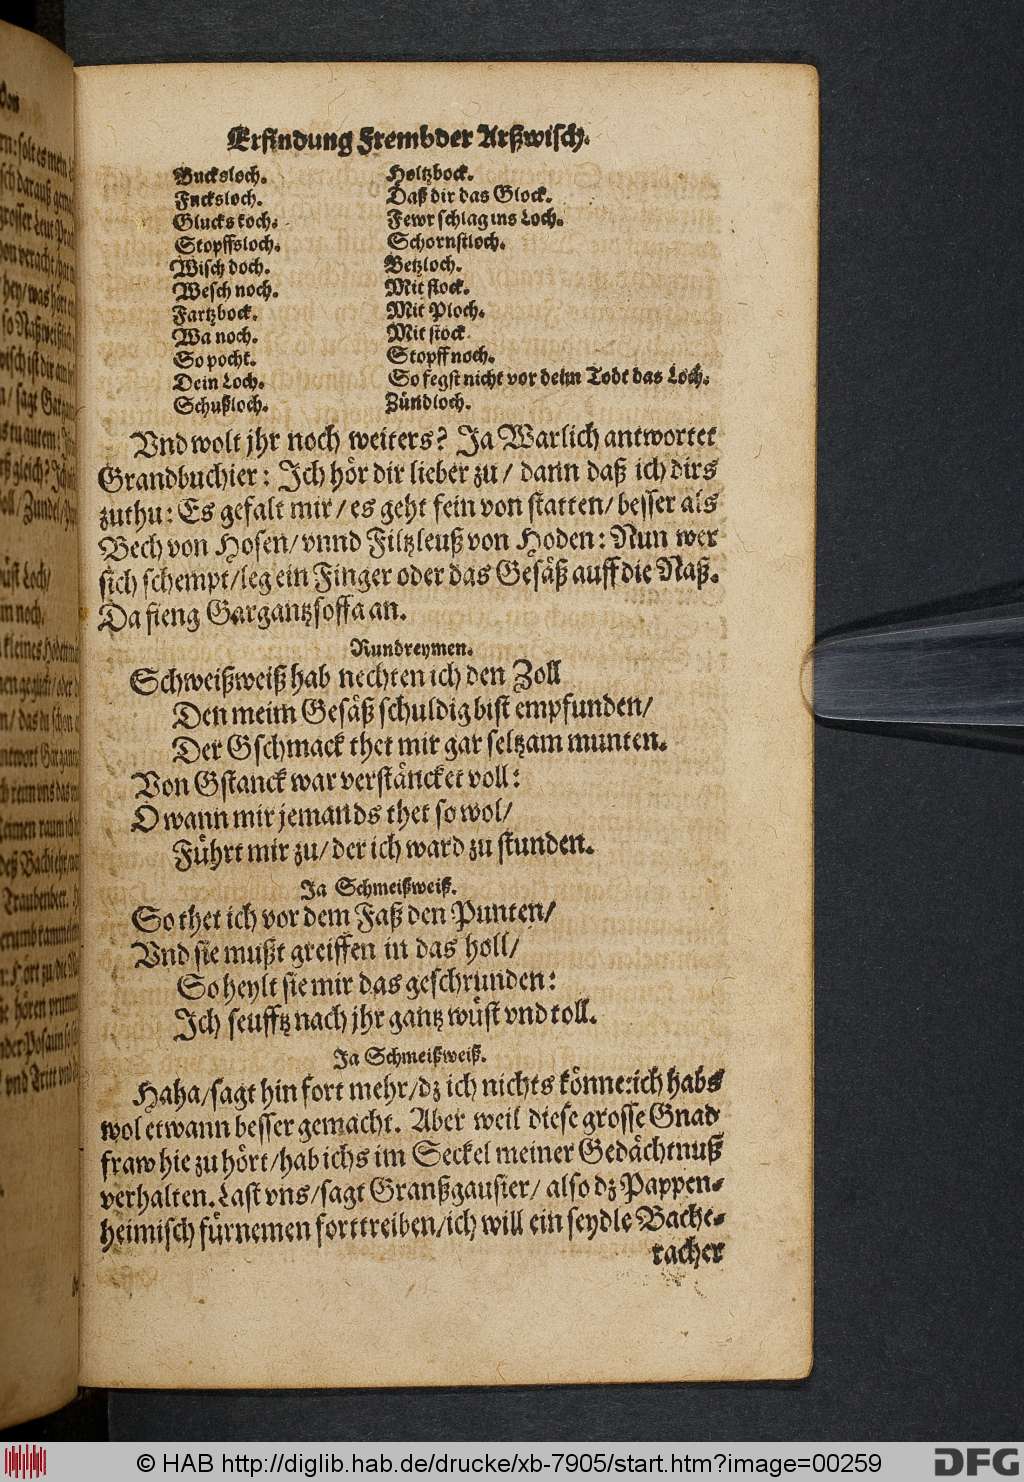 Erfindung Frembder Arßwisch.
Bucksloch.
Fucksloch.
Glucks koch.
Stopffsloch.
Wisch doch.
Wesch noch.
Fartzbock.
Wa noch.
So pocht.
Dein Loch.
Schußloch.
Holtzbock.
Daß dir das Glock.
Fewr schlag ins Loch.
Schornstloch.
Betzloch.
Mit stock.
Mit Ploch.
Mit stock
Stopff noch.
So fegst nicht vor deim Todt das Loch.
Zündloch.
Vnd wolt jhr noch weiters? Ja Warlich antwortet
Grandbuchier: Ich hör dir lieber zu/ dann daß ich dirs
zuthu: Es gefalt mir/ es geht fein von statten/ besser als
Bech von Hosen/ vnnd Filtzleuß von Hoden: Nun wer
sich schempt/ leg ein Finger oder das Gesäß auff die Naß.
Da fieng Gargantzsoffa an.
Rundreymen.
Schweißweiß hab nechten ich den Zoll
Den meim Gesäß schuldig bist empfunden/
Der Gschmack thet mir gar seltzam munten.
Von Gstanck war verstäncket voll:
O wann mir jemands thet so wol/
Führt mir zu/ der ich ward zu stunden.
Ja Schmeißweiß.
So thet ich vor dem Faß den Punten/
Vnd sie mußt greiffen in das holl/
So heylt sie mir das geschrunden:
Ich seufftz nach jhr gantz wüst vnd toll.
Ja Schmeißweiß.
Haha/ sagt hin fort mehr/ dz ich nichts könne: ich habs
wol etwann besser gemacht. Aber weil diese grosse Gnad
fraw hie zu hört/ hab ichs im Seckel meiner Gedächtnuß
verhalten. Last vns/ sagt Granßgausier/ also dz Pappen-
heimisch fürnemen forttreiben/ ich will ein seydle Bache-
racher
© HAB http://diglib.hab.de/drucke/xb-7905/start.htm?image=00259
DFG